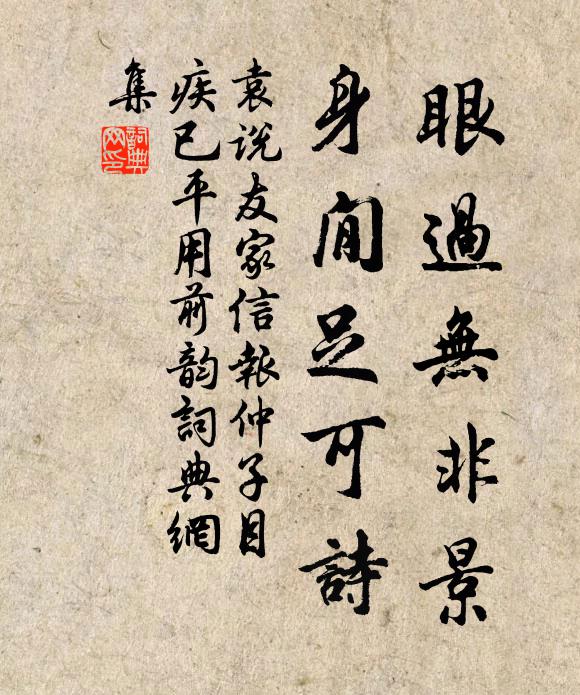 眼過無非景
身閒足可詩
袁說友家信報仲子目
疾已平用前韵詞典網
集
詞典網印